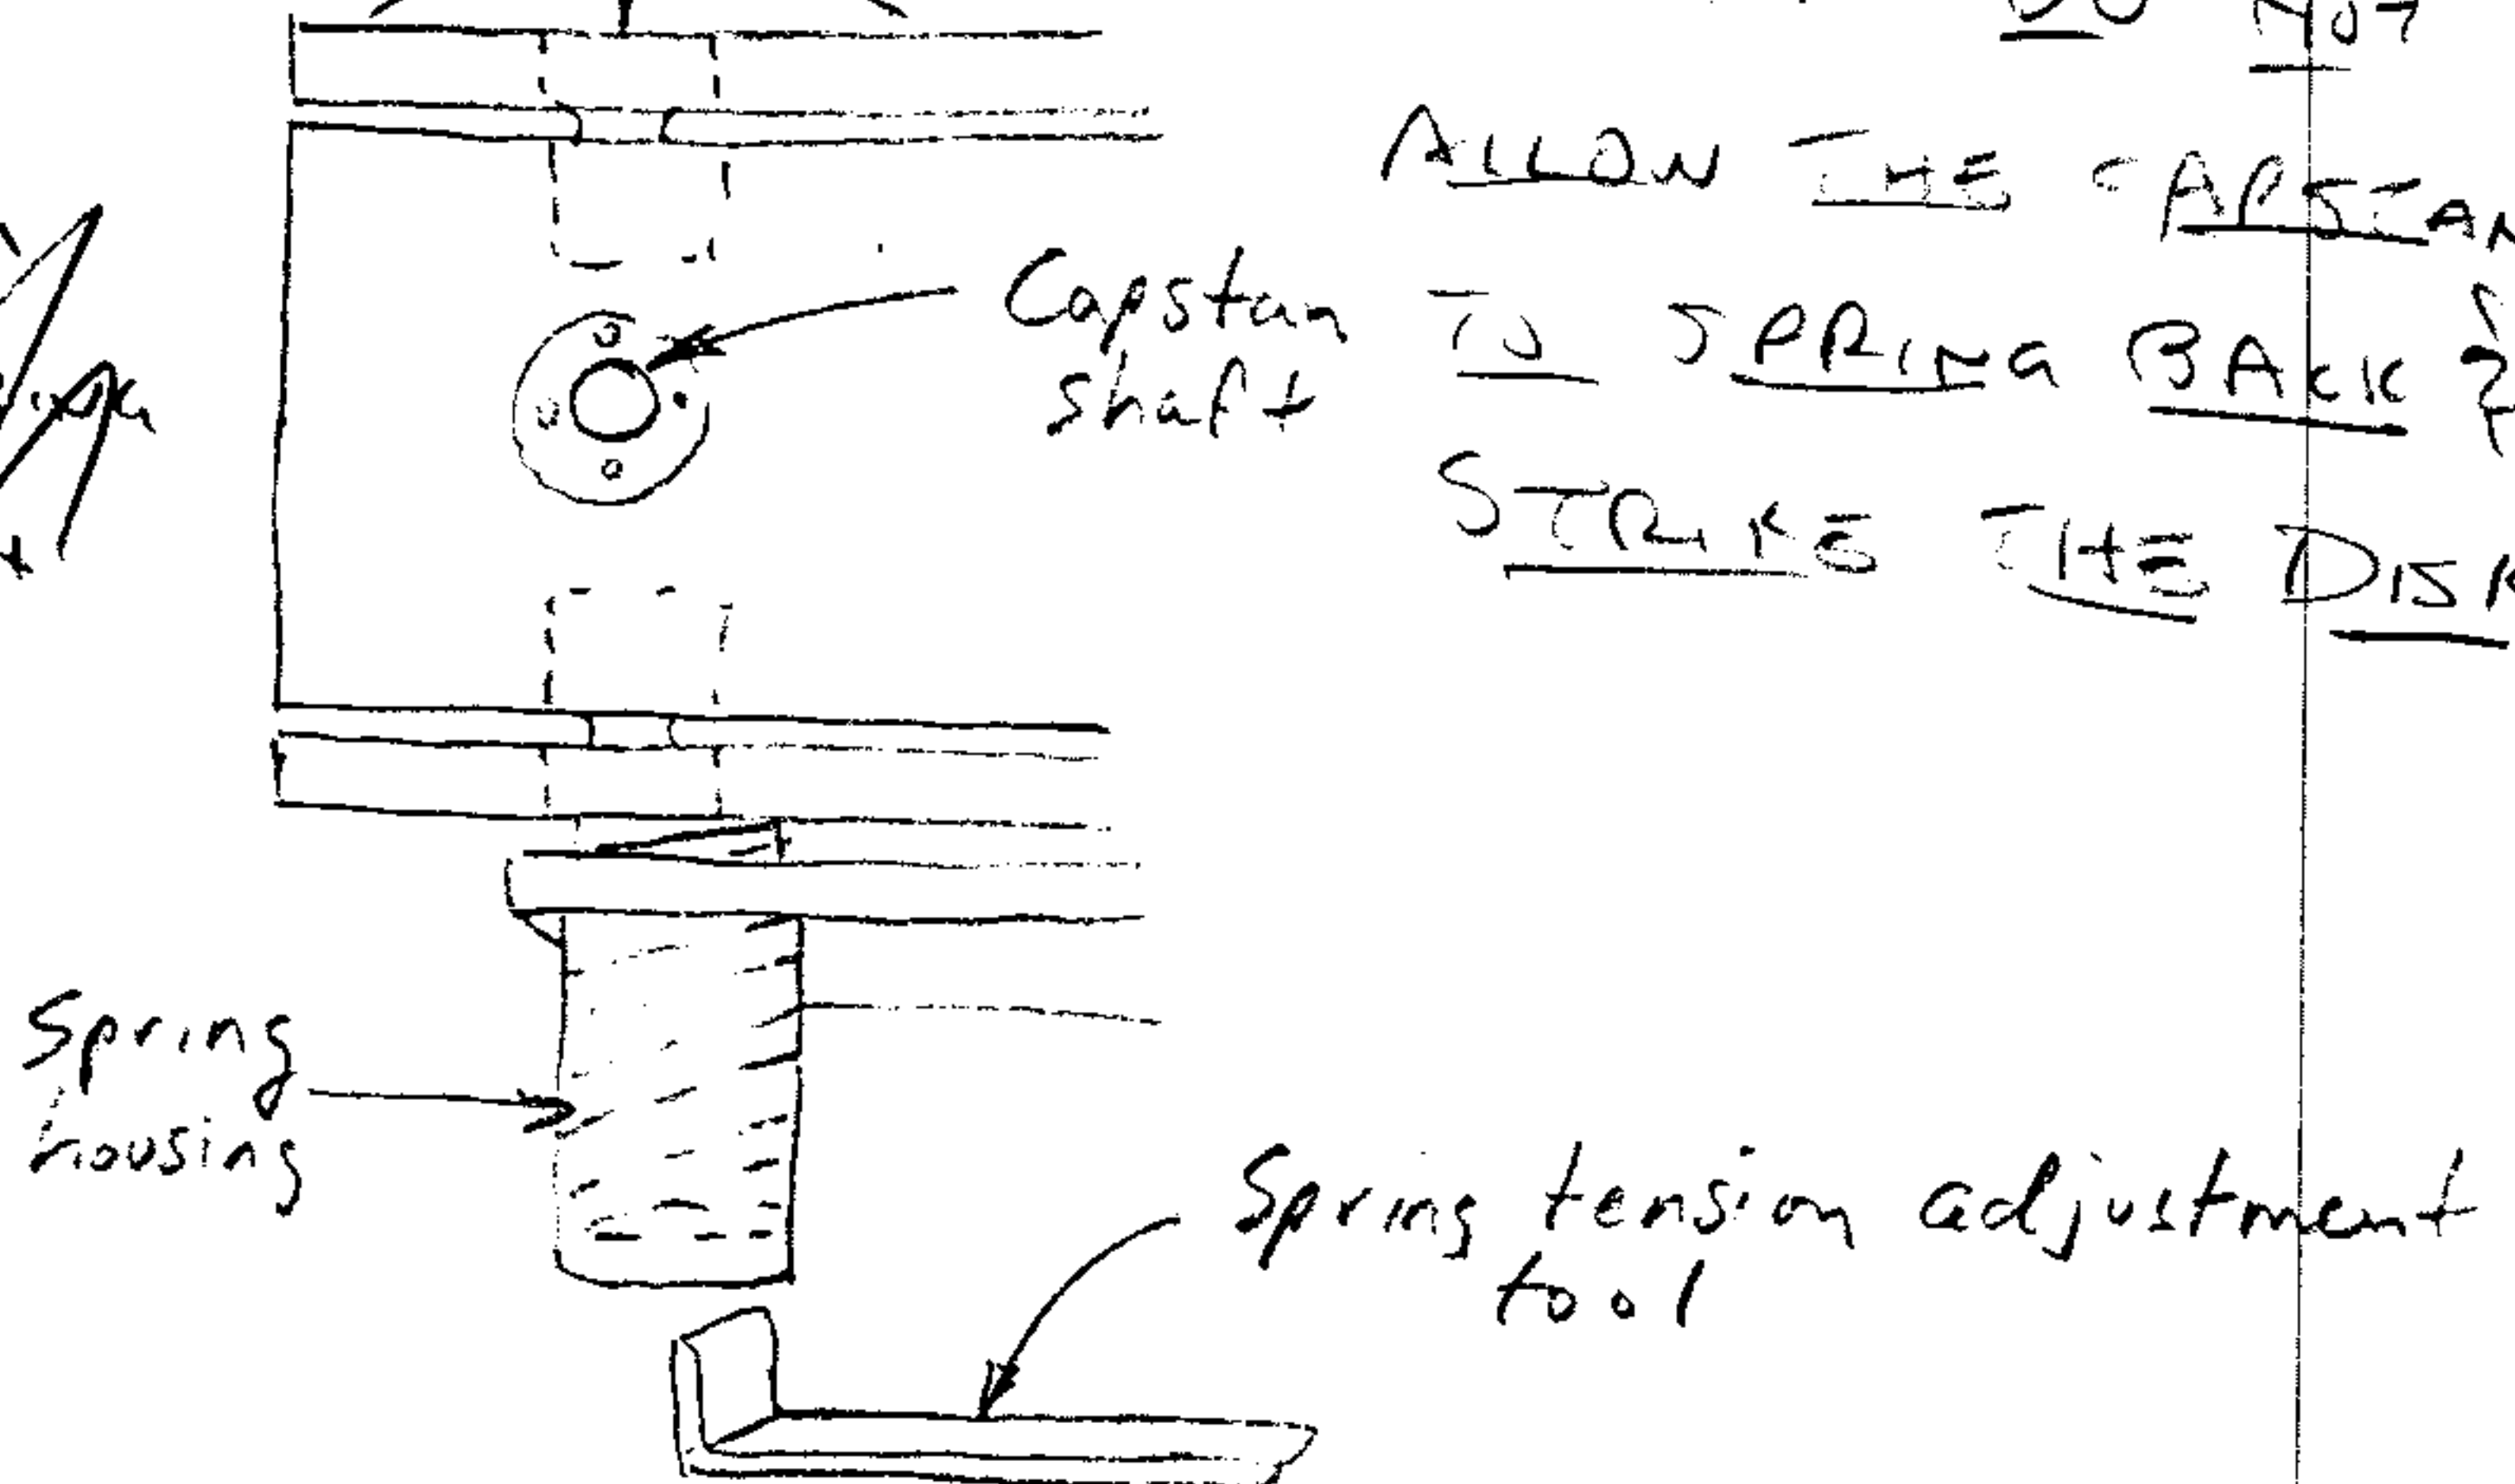 DO NOT
ALLOW THE CAPSTAN
TO SPRING BACK &
STRIKE THE DISK
Capstan
shaft
Spring
housing
Spring tension adjustment
tool